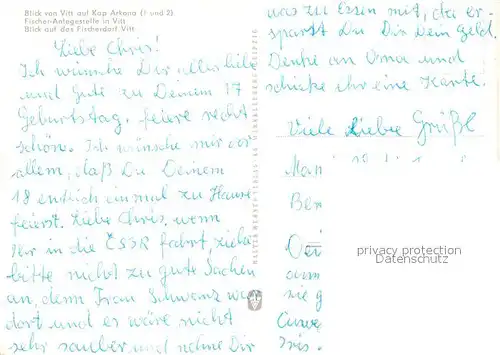 Blick von Vitt auf Kap Arkona (1 und 2)
Fischer-Anlegestelle in Vitt
Blick auf das Fischerdorf Vitt
Liebe Chris!
Ich wünsche Dir alles liebe
und Gute zu Deinem 17
Geburtstag, feiere recht
schön. Ich wünsche mir vor
allem, daß Du Deinem
18 endlich einmal zu Hause
feierst. Liebe Chris, wenn
Ihr in die ČSSR fahrt, ziehe
bitte nicht zu gute Sachen
an, denn Frau Schwanz
dort und es wäre nicht
sehr sauber und nehme Dir
was zu Essen mit, da er-
sparst Du Dir Dein Geld.
Denke an Oma und
schicke ihr eine Karte.
Viele Liebe Grüße
privacy protection
Datenschutz